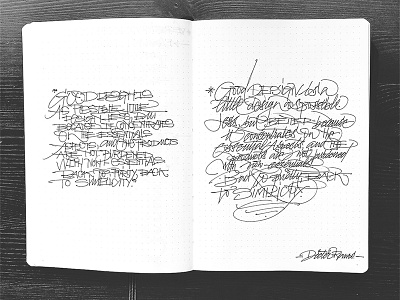 "GOOD DESIGN IS
AS POSSIBLE LITTLE
DESIGN LESS, BUT
BECAUSE IT CONCENTRATES
ON THE ESSENTIALS
ASPECTS, AND THE PRODUCTS
ARE NOT BURDENED
WITH NON-ESSENTIALS
BACK TO PURITY, BACK
TO SIMPLICITY."
"Good DESIGN is a
little design as possible
Less, but BETTER because
it concentrates on the
essential aspects, and THE
products are not burdened
with non-essentials
Back to purity, BACK
to SIMPLICITY."
Dieter Rams